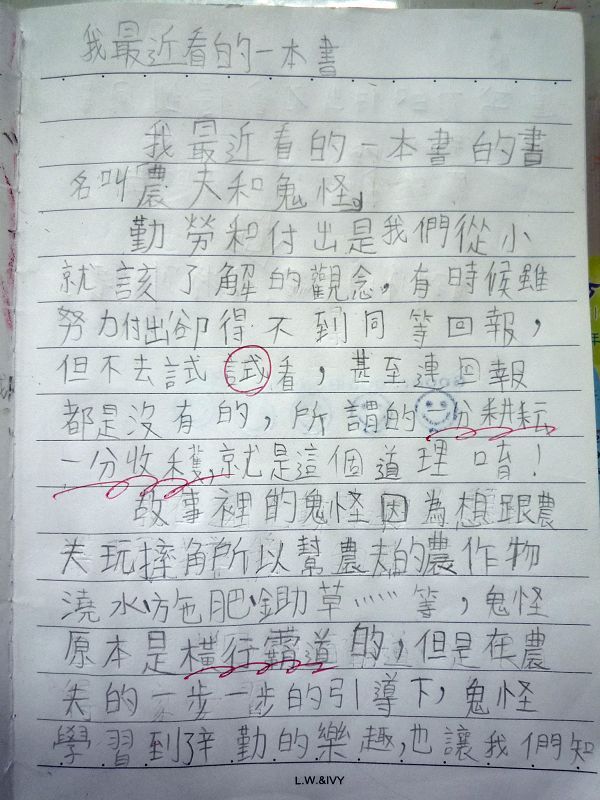 我最近看的一本書
我最近看的一本書的書
名叫農夫和鬼怪。
勤勞和付出是我們從小
就該了解的觀念,有時候雖
努力付出卻得不到同等回報,
但不去試試看,甚至連回報
都是沒有的,所謂的一分耕耘
一分收穫,就是這個道理唷!
故事裡的鬼怪因為想跟農
夫玩摔角所以幫農夫的農作物
澆水、施肥、鋤草……等,鬼怪
原本是橫行霸道的,但是在農
夫的一步一步的引導下,鬼怪
學習到辛勤的樂趣,也讓我們知
L.W.&IVY